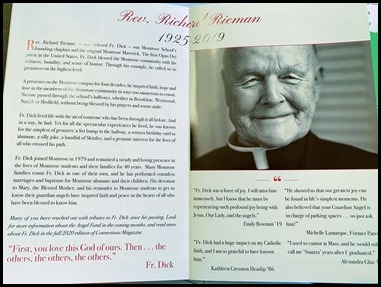 Rev. Richard Rieman
1925-2019
Rev. Richard Rieman — our beloved Fr. Dick — was Montrose School's
founding chaplain and the original Montrose Maverick. The first Opus Dei
priest in the United States, Fr. Dick blessed the Montrose community with his
holiness, humility, and sense of humor. Through his example, he called us to
greatness on the highest level.
A presence on the Montrose campus for four decades, he inspired faith, hope and
love in the members of the Montrose community in ways too numerous to count.
No one passed through the school's hallways, whether in Brookline, Westwood,
Natick or Medfield, without being blessed by his prayers and warm smile.
Fr. Dick lived life with the air of someone who has been through it all before. And
in a way, he had. Yet for all the spectacular experiences he lived, he was known
for the simplest of gestures: a fist bump in the hallway, a written birthday card to
alumnae, a silly joke, a handful of Skittles, and a genuine interest for the lives of
all who crossed his path.
Fr. Dick joined Montrose in 1979 and remained a steady and loving presence in
the lives of Montrose students and their families for 40 years. Many Montrose
families count Fr. Dick as one of their own, and he has performed countless
marriages and baptisms for Montrose alumnae and their children. His devotion
to Mary, the Blessed Mother, and his reminder to Montrose students to get to
know their guardian angels have inspired faith and peace in the hearts of all who
have been blessed to know him.
Many of you have reached out with tributes to Fr. Dick since his passing. Look
for more information about the Angel Fund in the coming months, and read more
about Fr. Dick in the fall 2020 edition of Connections Magazine.
"First, you love this God of ours. Then . . . the
others, the others, the others."
Fr. Dick
"Fr. Dick was a force of joy. I will miss him
immensely, but I know that he must be
experiencing such profound joy being with
Jesus, Our Lady, and the angels."
Emily Bowman '19
"Fr. Dick had a huge impact on my Catholic
faith, and I am so grateful to have known
him."
Kathleen Grennon Heaslip '86
"He showed us that our greatest joy can
be found in life's simplest moments. He
also believed that your Guardian Angel is
in charge of parking spaces . . . so just
ask him!"
Michelle Lamarque, Former Parent
"I used to cantor at Mass, and he would still
call me 'Sinatra' years after I graduated."
Alexandra Chia